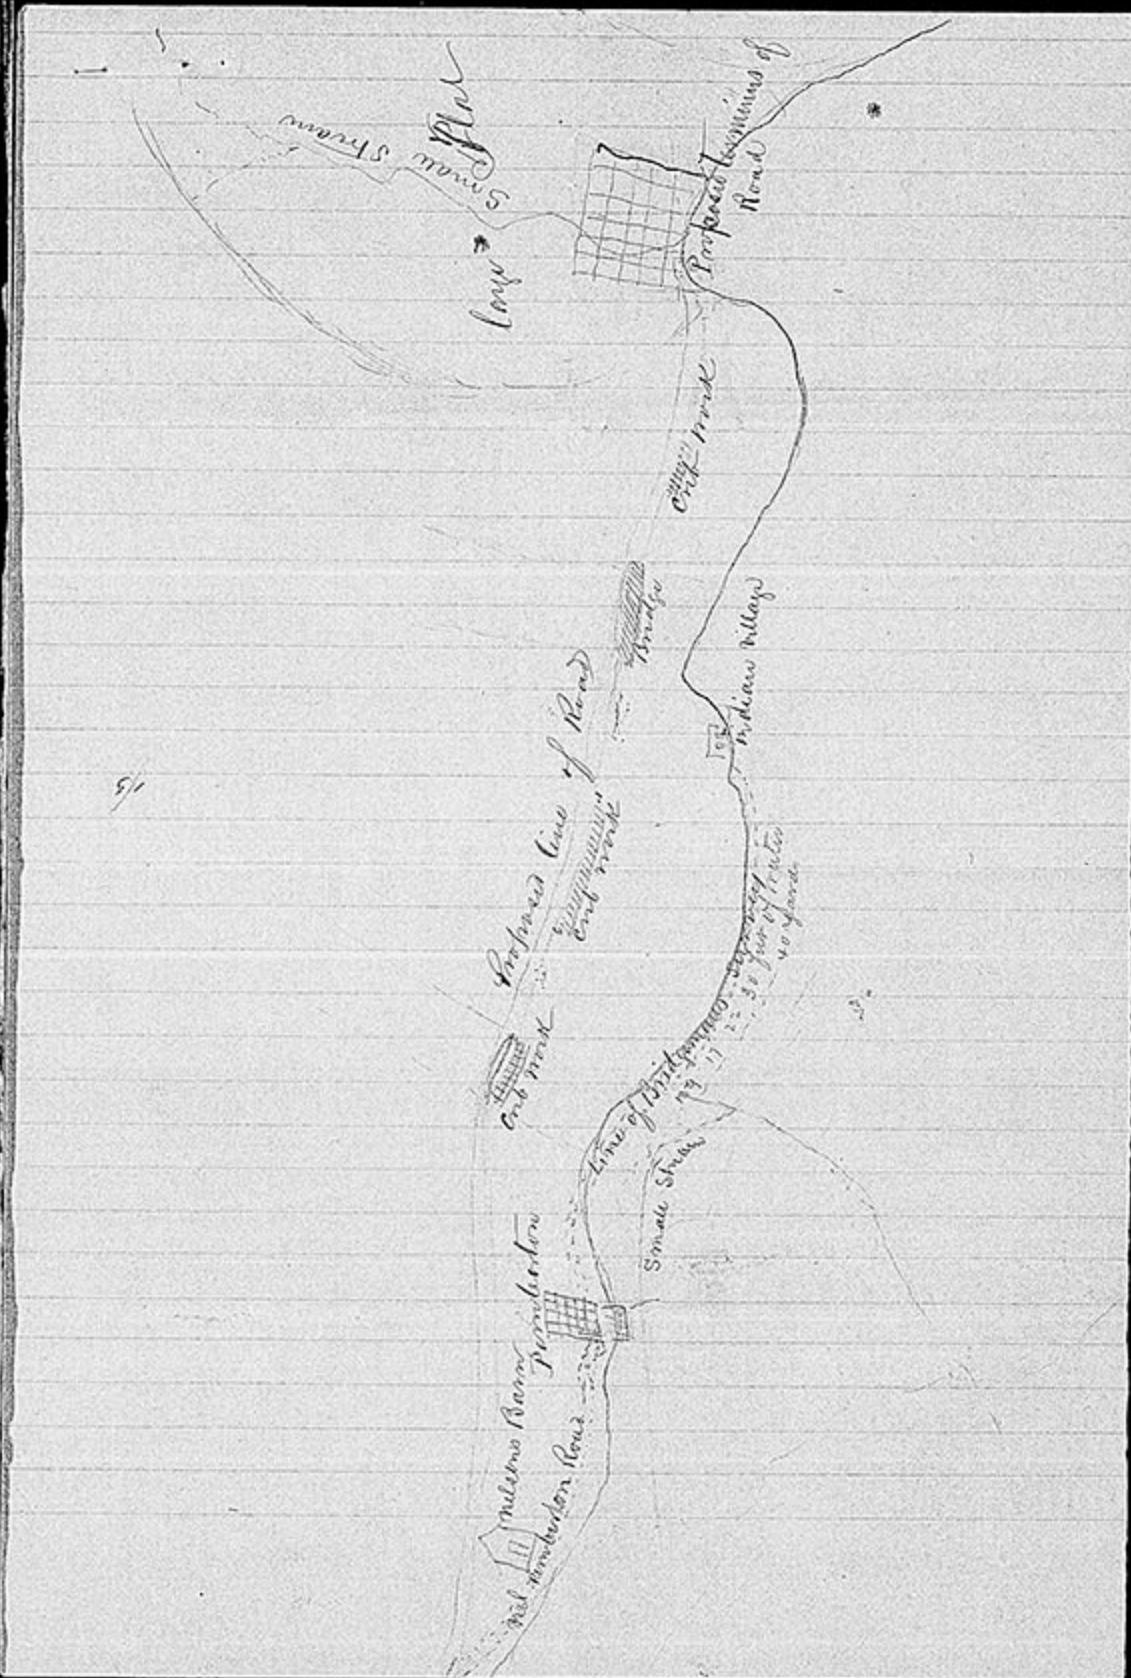 Small Stream
Large Flat
Proposed Terminus of
Road
Crib Work
Bridge
Indian Village
Proposed Line of Road
Crib Work
Crib Work
Line of Bridgemans Survey
40 yards
Small Stream
Pemberton
Nelsons Barn
Pemberton Road